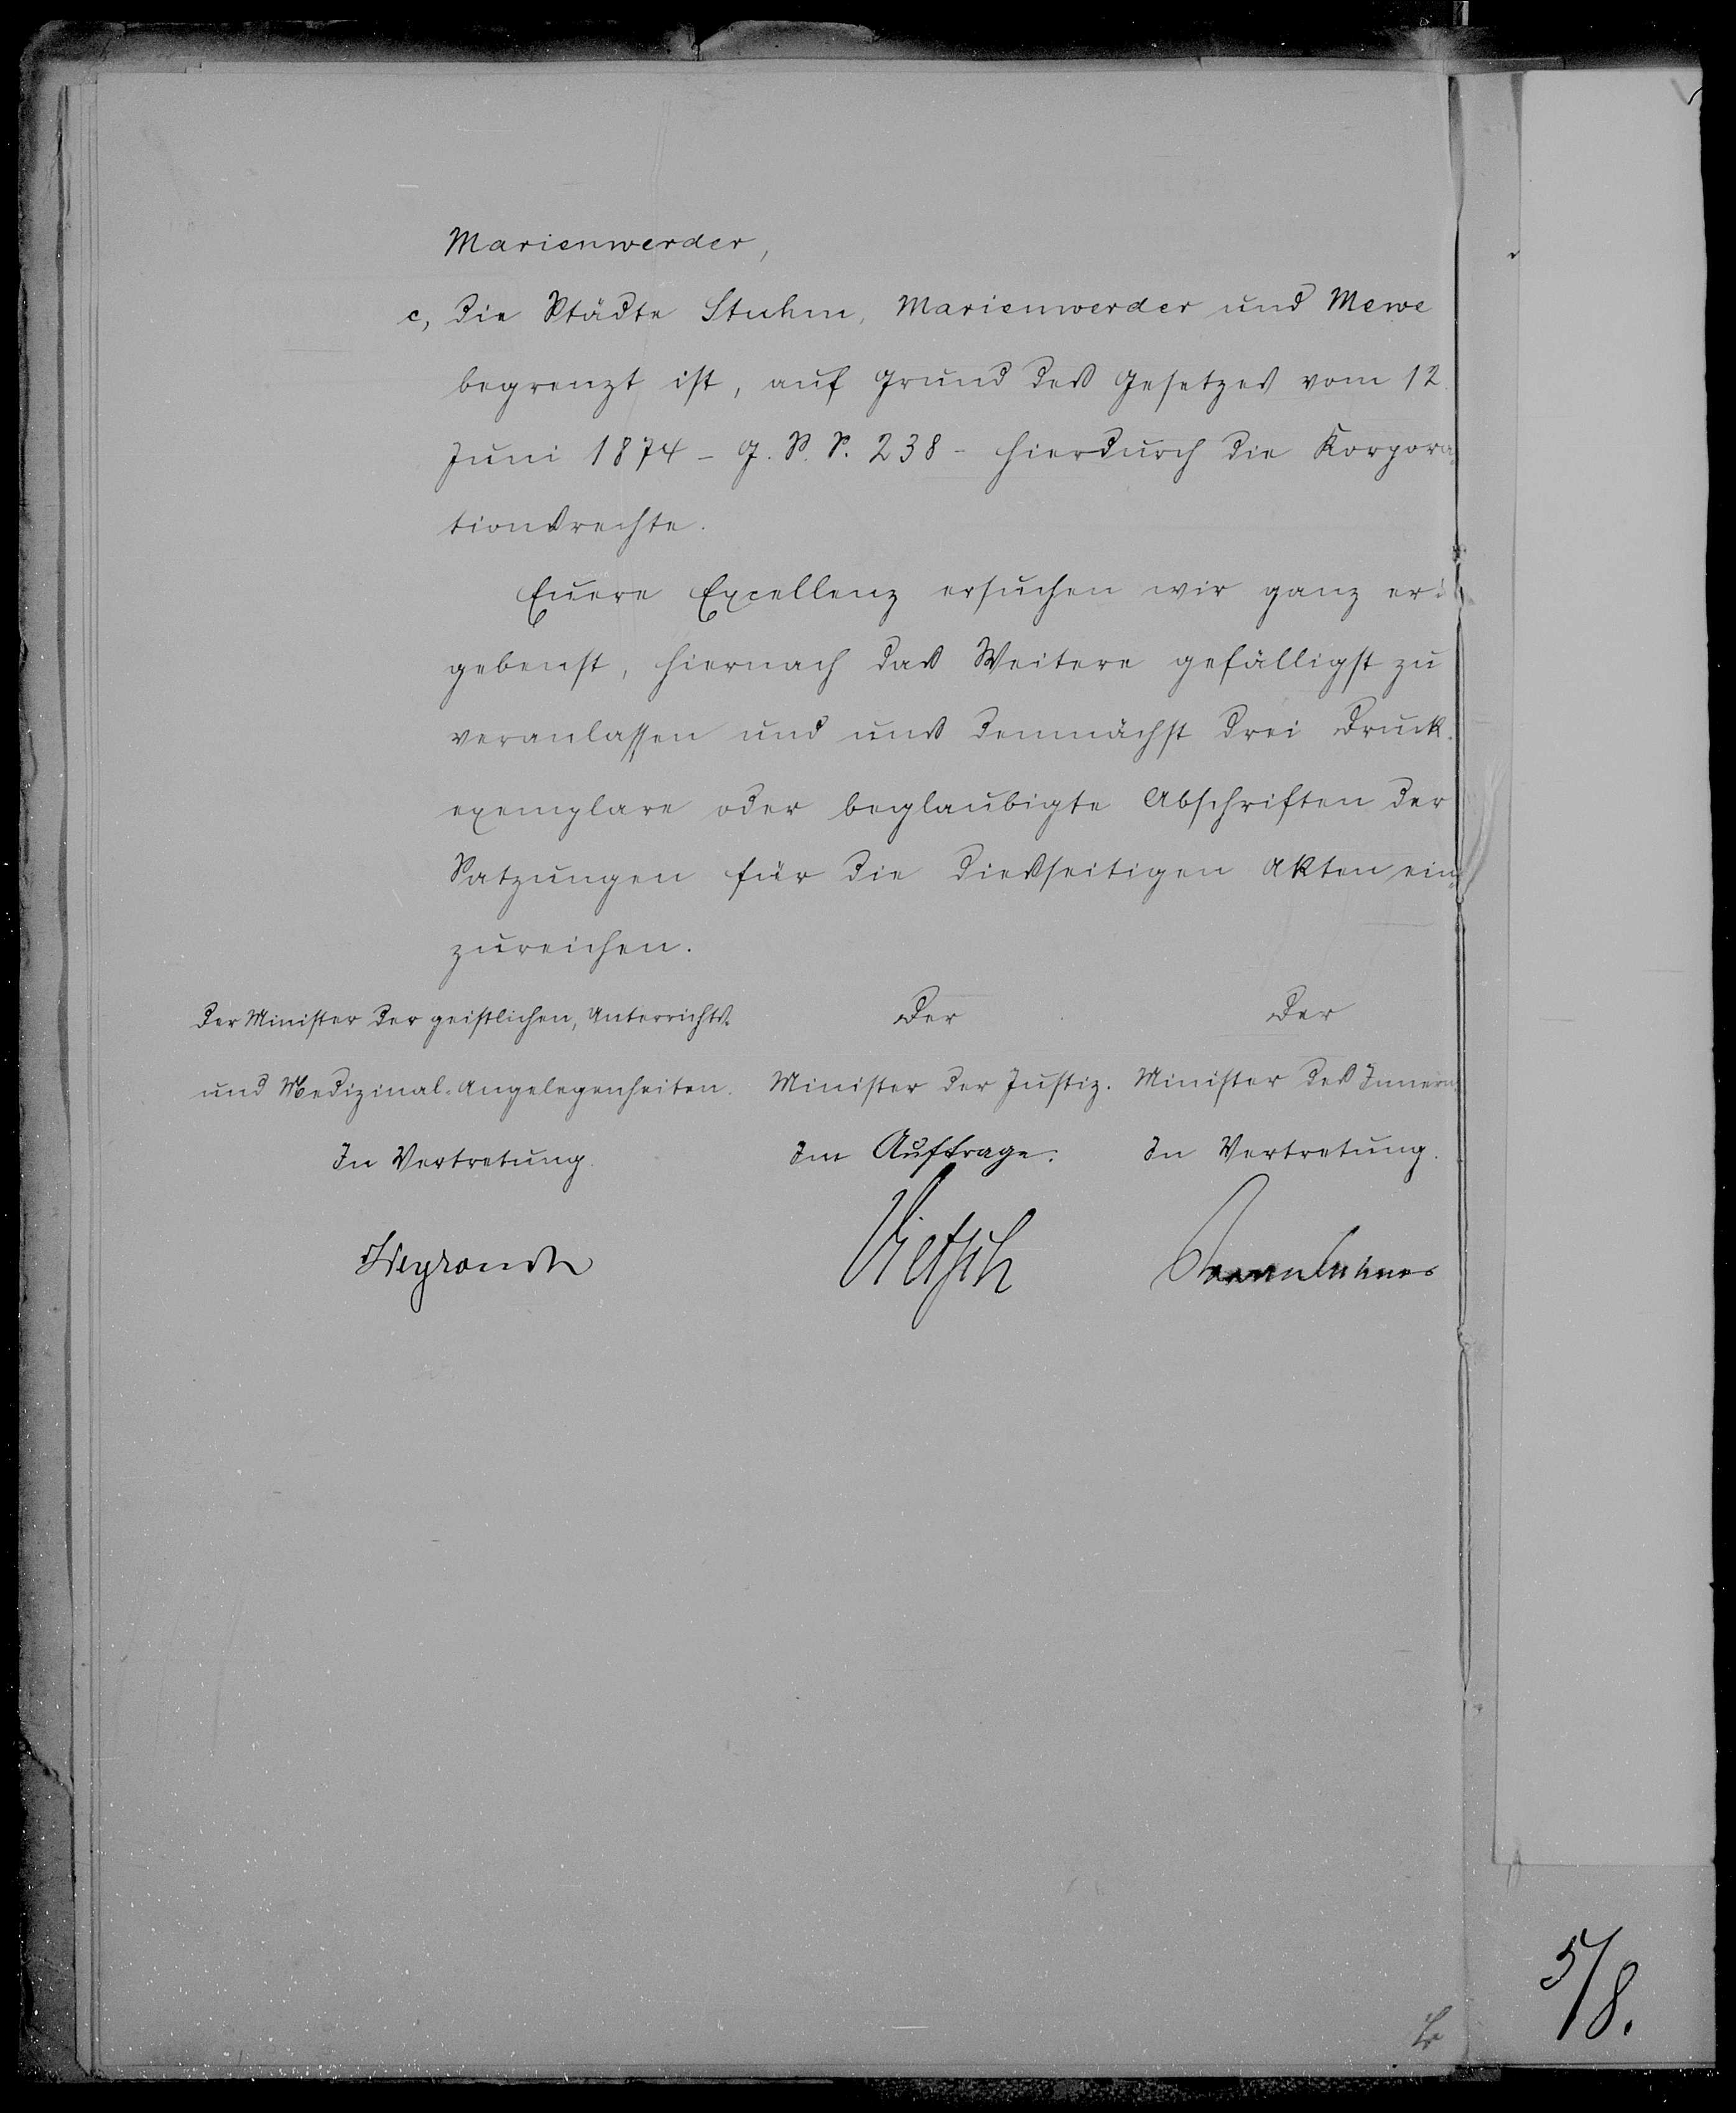 Marienwerder,
c, die Städte Stuhm, Marienwerder und Mewe
begrenzt ist, auf Grund des Gesetzes vom 12.
Juni 1874 - G. S. S. 238 - hierdurch die Korpora-
tionsrechte.
Euere Excellenz ersuchen wir ganz er-
gebenst, hiernach das Weitere gefälligst zu
veranlassen und uns demnächst drei Druck-
exemplare oder beglaubigte Abschriften der
Satzungen für die diesseitigen Akten ein-
zureichen.
Der Minister der geistlichen, Unterrichts- Der Der
und Medizinal-Angelegenheiten. Minister der Justiz. Minister des Innern
In Vertretung. Im Auftrage. In Vertretung.
Weyrauch Vietsch Braunbehrens
5/8.